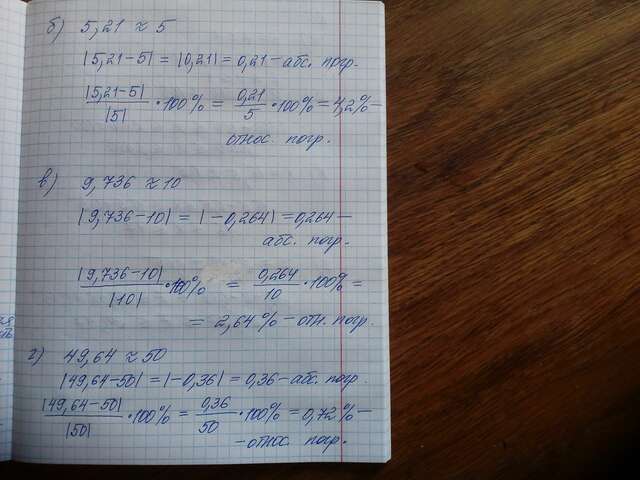 б) 5,21 ≈ 5
|5,21-5| = |0,21| = 0,21 - абс. погр.
|5,21-5| / |5| • 100% = 0,21 / 5 • 100% = 4,2% -
относ. погр.
в) 9,736 ≈ 10
|9,736-10| = |-0,264| = 0,264 -
абс. погр.
|9,736-10| / |10| • 100% = 0,264 / 10 • 100% =
= 2,64% - отн. погр.
г) 49,64 ≈ 50
|49,64-50| = |-0,36| = 0,36 - абс. погр.
|49,64-50| / |50| • 100% = 0,36 / 50 • 100% = 0,72% -
- относ. погр.